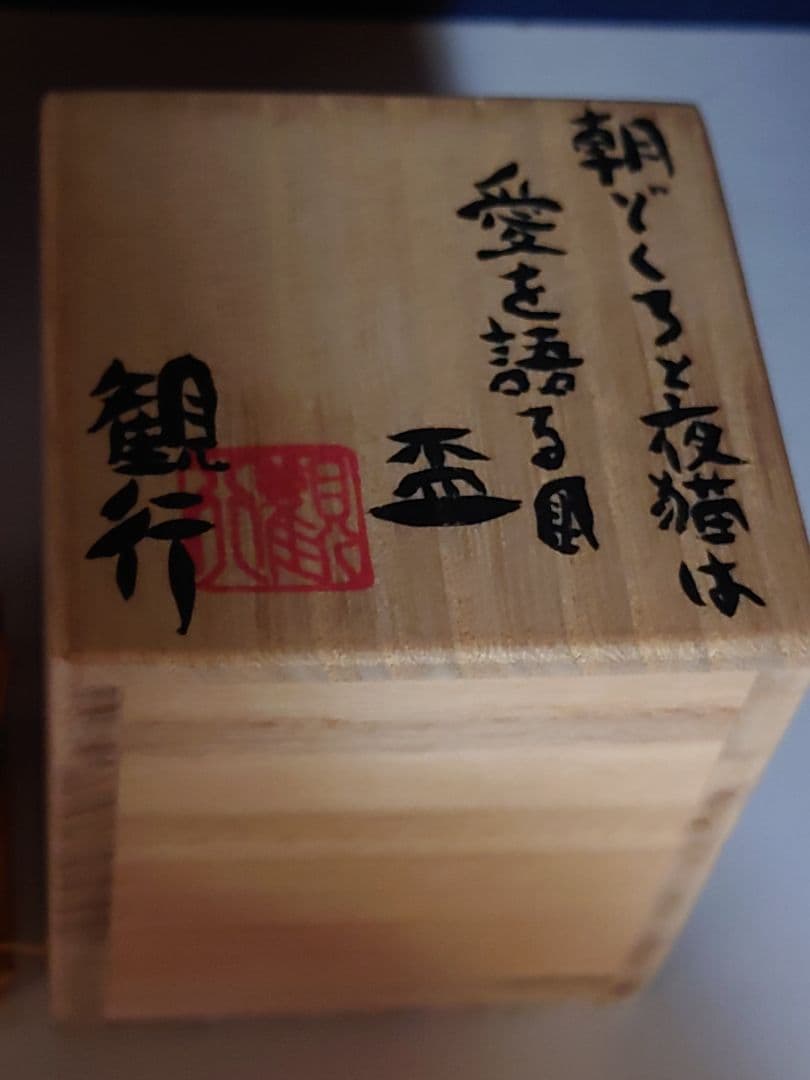 朝どくろと夜猫は
愛を語る図
盃
観行